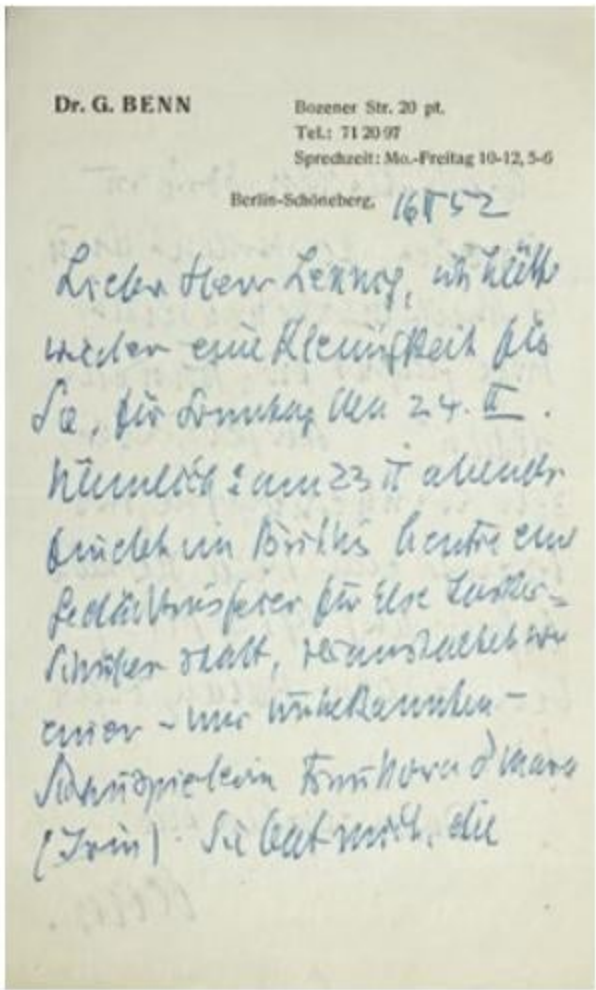 Dr. G. BENN
Bozener Str. 20 pt.
Tel.: 71 20 97
Sprechzeit: Mo.-Freitag 10-12, 5-6
Berlin-Schöneberg, 16 II 52
Lieber Herr Lennig, ich hätte
wieder eine Kleinigkeit für
Sie, für Sonntag den 24. II.
Nämlich: am 23 II abends
findet im British Centre eine
Gedächtnisfeier für Else Lasker-
Schüler statt, veranstaltet von
einer – mir unbekannten –
Schauspielerin Frau O'Mara
(Irin). Sie bat mich, die